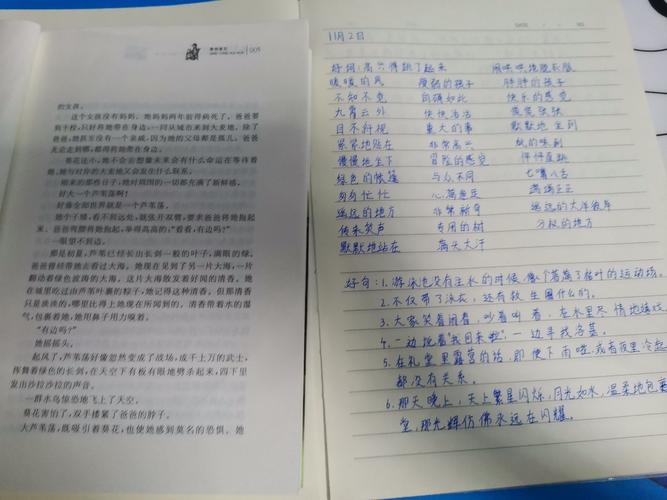 005
的女孩。
这个女孩没有妈妈。她妈妈两年前得病死了。爸爸要
到干校，只好将她带在身边，一同从城市来到大麦地。除了
爸爸，她甚至没有一个亲戚，因为她的父母都是孤儿。爸爸
无论走到哪，都得将她带在身边。
葵花还小，她不会去想象未来会有什么命运在等待着
她、她与对岸的大麦地又会发生什么联系。
刚来的那些日子，她对周围的一切都充满了新鲜感。
好大一个芦苇荡啊！
好像全部世界就是一个芦苇荡。
她个子矮，看不到远处，就张开双臂，要求爸爸将她抱起
来。爸爸弯腰将她抱起，举得高高的：“看看，有边吗？”
一眼望不到边。
那是初夏，芦苇已经长出长剑一般的叶子，满眼的绿。
爸爸曾经带她去看过大海。她现在见到了另一片大海，一片
翻动着绿色波涛的大海。这片大海散发着好闻的清香。她在
城里吃过由芦苇叶裹的粽子，她记得这种清香。但那清香
只是淡淡的，哪里比得上她现在所闻到的。清香带着水的湿
气，包裹着她，她用鼻子用力嗅着。
“有边吗？”
她摇摇头。
起风了，芦苇荡好像忽然变成了战场，成千上万的武士，
挥舞着绿色的长剑，在天空下有板有眼地劈杀起来，四下里
发出沙拉沙拉的声音。
一群水鸟惊恐地飞上了天空。
葵花害怕了，双手搂紧了爸爸的脖子。
大芦苇荡，既吸引着葵花，也使她感到莫名的恐惧。她
11月2日
好词：高兴得跳了起来
暖暖的风 瘦弱的孩子 胖胖的孩子
不知不觉 的确如此 快乐的感觉
九霄云外 快快活活
目不斜视 重大的事 默默地走到
紧紧地贴在 非常高兴
慢慢地坐下 冒险的感觉
绿色的帐篷 与众不同 七嘴八舌
匆匆忙忙 心满意足
遥远的地方 非常新奇 遥远的大洋彼岸
传来笑声 专用的树
默默地站在 满头大汗
好句：1. 游泳池没有注水的时候，像个落满了树叶的运动场。
2. 不仅带了泳衣，还有救生圈什么的。
3. 大家笑着闹着，吵着叫着，在水里尽情地嬉戏
4. 一边说着“我回来啦”，一边寻找名甚。
5. 在礼堂里露营的话，即使下雨啦，或者夜里冷起
都没有关系。
6. 那天晚上，天上繁星闪烁，月光如水，温柔地包裹
堂，那光辉仿佛永远在闪耀。